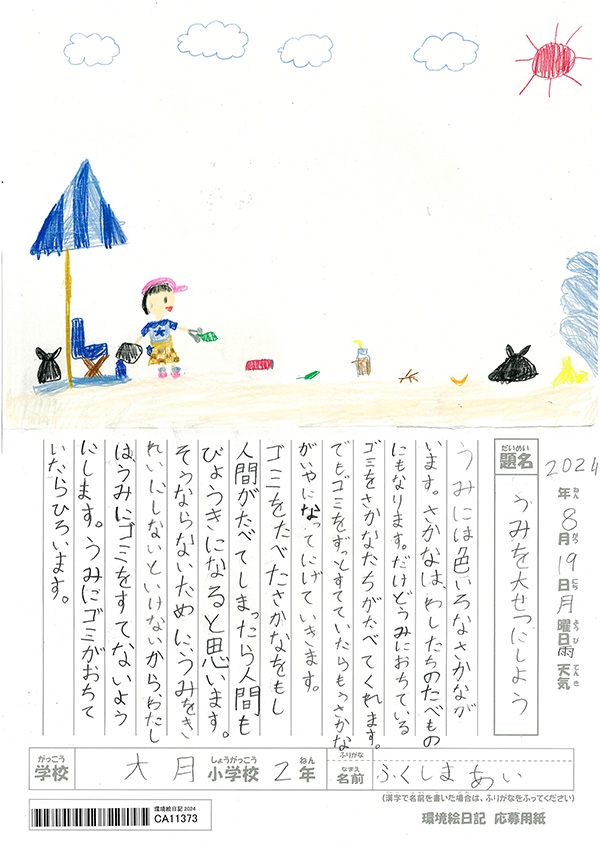 2024年8月19日月曜日雨天気
ねん がつ にち ようび てんき
だいめい
題名
うみを大せつにしよう
うみには色いろなさかなが
います。さかなは、わしたちのたべもの
にもなります。だけどうみにおちている
ゴミをさかなたちがたべてくれます。
でもゴミをずっとすてていたらもっさかな
がいやになってにげていきます。
ゴミをたべたさかなをもし
人間がたべてしまったら人間も
びょうきになると思います。
そうならないためにうみをき
れいにしないといけないからわたし
は、うみにゴミをすてないよう
にします。うみにゴミがおちて
いたらひろいます。
がっこう しょうがっこう ねん
学校 大月小学校2年
ふりがな
なまえ
名前 ふくしまあい
(漢字で名前を書いた場合は、ふりがなをふってください)
環境絵日記 2024
CA11373
環境絵日記 応募用紙